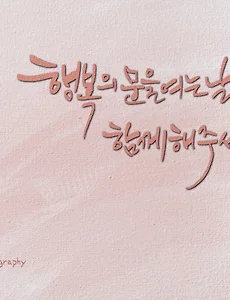 행복의 문을 여는 날
함께 해주서
graphy